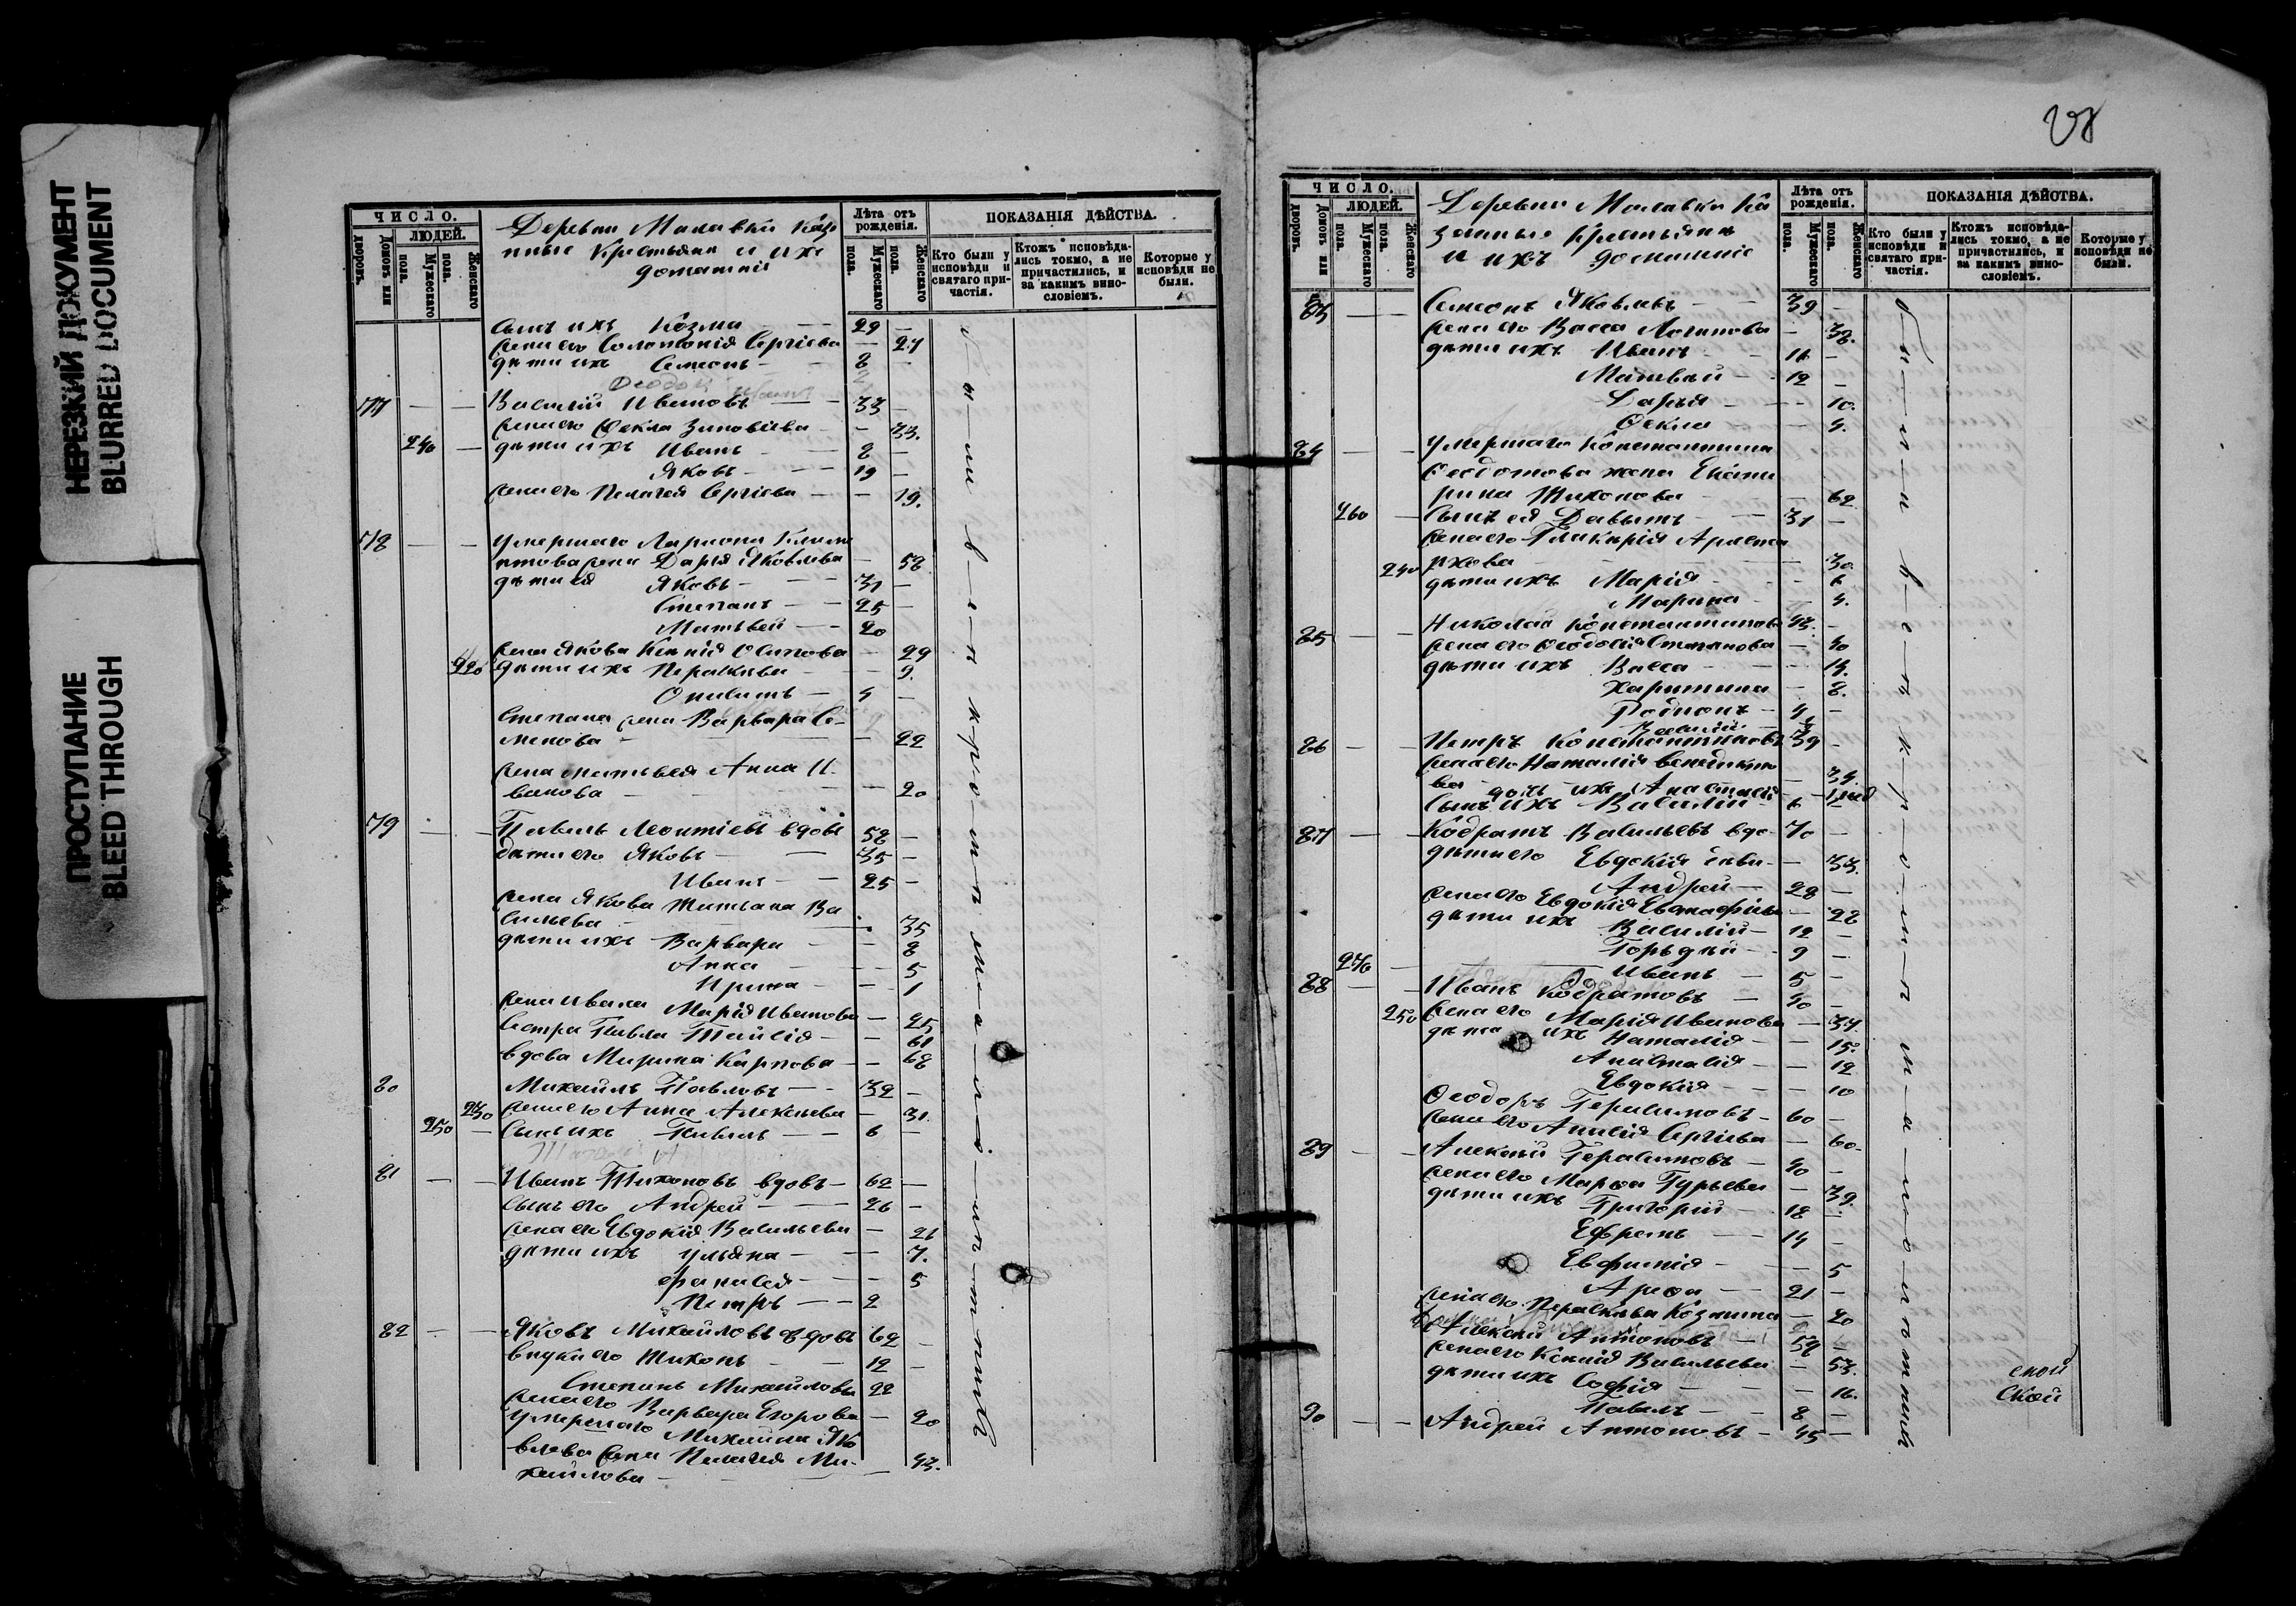 НЕРЕЗКИЙ ДОКУМЕНТ
BLURRED DOCUMENT
ПРОСТУПАНИЕ
BLEED THROUGH
ЧИСЛО.
ЛЮДЕЙ.
Домовъ или дворовъ.
Мужескаго пола.
Женскаго пола.
Деревни Малавки Каз
нные Крестьяне и ихъ
домашніе
Лѣта отъ рожденія.
Мужескаго пола.
Женскаго пола.
ПОКАЗАНІЯ ДѢЙСТВА.
Кто были у исповѣди и святаго причастія.
Ктожъ исповѣдались токмо, а не причастились, и за какимъ винословіемъ.
Которые у исповѣди не были.
Сынъ ихъ Козма 29
жена его Соломонія Сергіева 27
дѣти ихъ Семенъ 8
Ѳеодоръ 2
77 Василій Ивановъ 33
жена его Ѳекла Зиновіева 33.
240 дѣти ихъ Иванъ 8
Яковъ 19
жена его Пелагея Сергіева 19.
78 Умершаго Ларіона
жена Дарья Яковлева 58
дѣти ея Яковъ 31
Степанъ 25
Матвей 20
жена Якова Ксенія Осипова 29
220 дѣти ихъ Параскева 9.
4
Степана жена Варвара Се-
менова 22
жена Матвея Анна И-
ванова 20
79 Павелъ Леонтіевъ вдовъ 58
дѣти его Яковъ 35
Иванъ 25
жена Якова Татьяна Ва
сильева 35
дѣти ихъ Варвара 8
Анна 5
Ирина 1
жена Ивана Марія Иванова 25
Сестра Павла Таисія 61
вдова Марина Карпова 68
80 Михаилъ Павловъ 32
230 жена его Анна Алексѣева 31.
250 Сынъ ихъ Павелъ 6
81 Иванъ Тихоновъ вдовъ 62
Сынъ его Андрей 26
жена его Евдокія Васильева 26
дѣти ихъ Ульяна 7.
5
Петръ 2
82 Яковъ Михайловъ вдовъ 62
внуки его Тихонъ 12
Степанъ Михайловъ 22
жена его Варвара Егорова 20
Умершаго Михаила Яко
влева жена Пелагея Ми-
хайлова 43.
28
ЧИСЛО.
ЛЮДЕЙ.
Домовъ или дворовъ.
Мужескаго пола.
Женскаго пола.
Деревни Малавки Ка
зенные Крестьяне
и ихъ домашніе
Лѣта отъ рожденія.
Мужескаго пола.
Женскаго пола.
ПОКАЗАНІЯ ДѢЙСТВА.
Кто были у исповѣди и святаго причастія.
Ктожъ исповѣдались токмо, а не причастились, и за какимъ винословіемъ.
Которые у исповѣди не были.
83 Семенъ Яковлевъ 39
жена его Васса Логинова 38.
дѣти ихъ Иванъ 16
Матвѣй 12
Дарья 10.
Ѳекла 4.
84 Умершаго Константина
Ѳедотова жена Екате
рина Тихонова 62
260 Сынъ ея Давыдъ 31
жена его Гликерія Ариста
рхова 30
240 дѣти ихъ Марія 6
Марина 4.
85 Николай Константиновъ 43.
жена его Ѳеодосія Степанова 40
дѣти ихъ Васса 14.
Харитина 8.
Родіонъ 4
Василій
86 Петръ Константиновъ 39
жена его Наталія
ва 34.
дочь ихъ Анастасія
Сынъ ихъ Василій 6
87 Кодратъ Васильевъ вдо- 70
дѣти его Евдокія 33.
Андрей 28
жена его Евдокія Евстафіева 28
дѣти ихъ Василій 12
Гордѣй 9
270 Иванъ 5
88 Иванъ Кодратовъ 40
250 жена его Марія Иванова 37.
дѣти ихъ Наталія 15.
Анастасія 12
Евдокія 10
Ѳеодоръ Герасимовъ 60
жена его Анисія Сергіева 60.
89 Алексѣй Герасимовъ 40
жена его Марѳа Гурьева 39.
дѣти ихъ Григорій 18
Ефремъ 14
Евфимія 5
Ареѳа 21
жена его Параскева Козмина 20
Алексѣй Антоновъ 52
жена его Ксенія Васильева 53.
дѣти ихъ Софія 16.
Павелъ 8
90 Андрей Антоновъ 45
ской
Ской